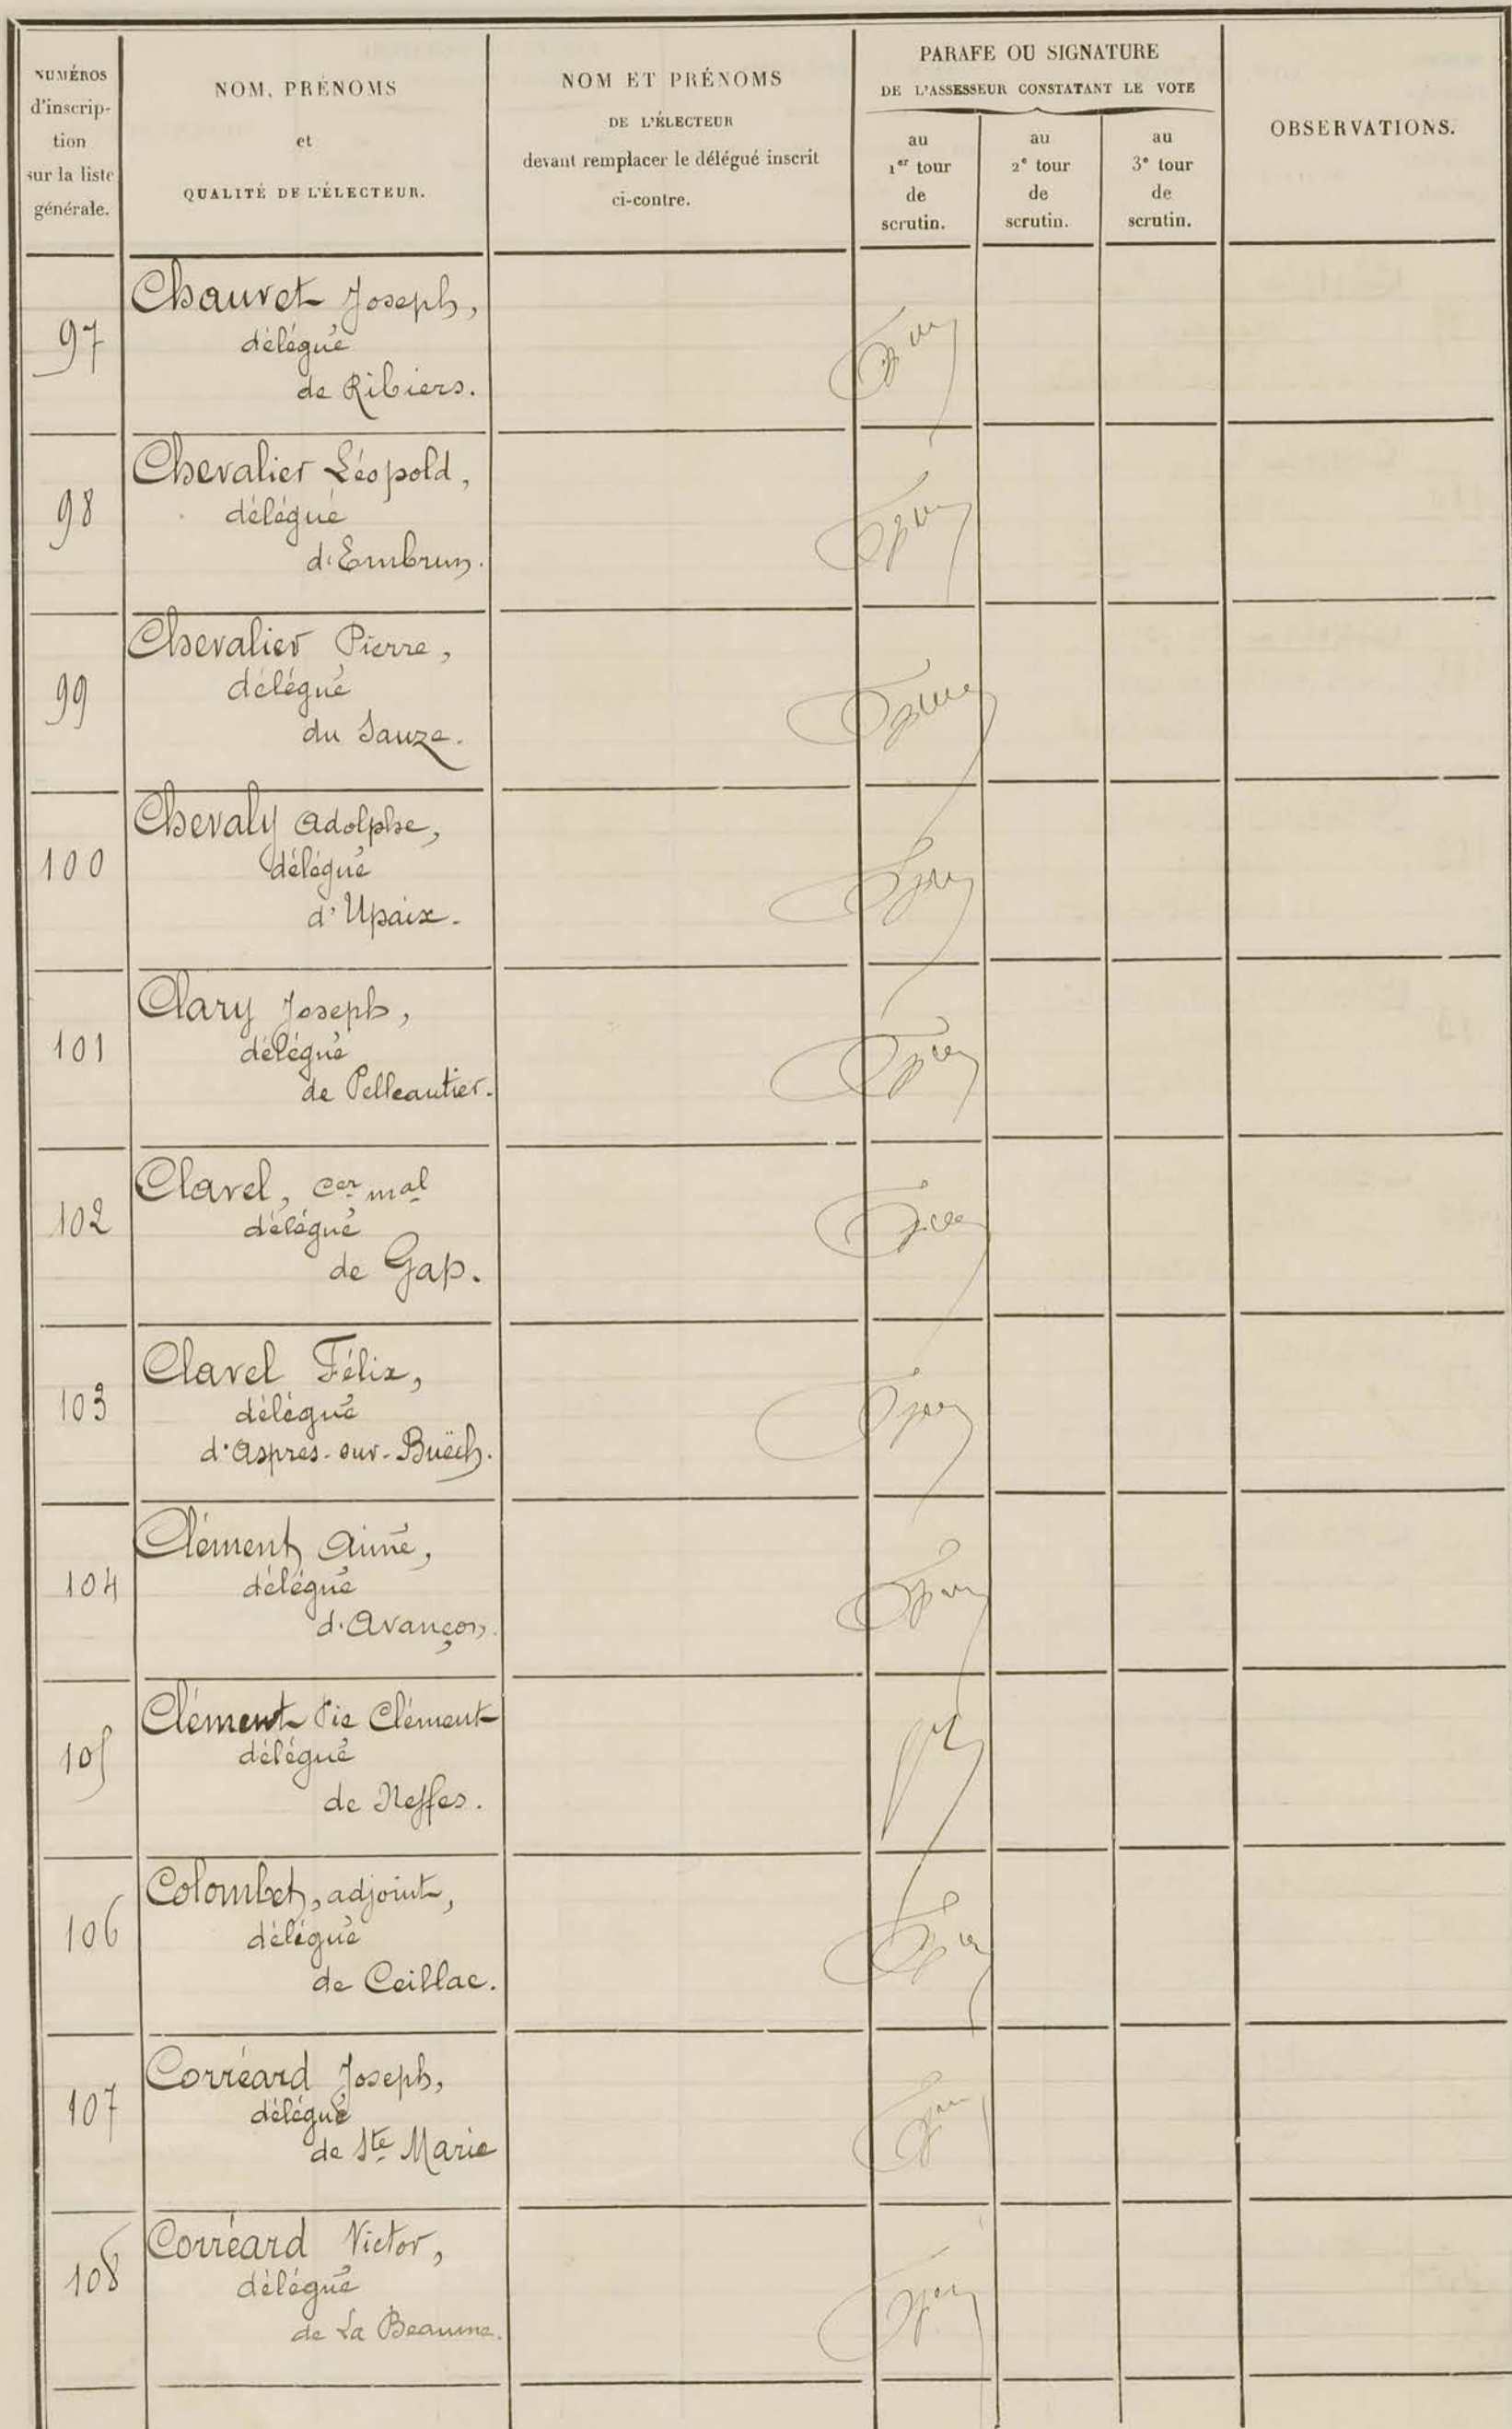 NUMÉROS
d'inscrip-
tion
sur la liste
générale.
NOM, PRÉNOMS
et
QUALITÉ DE L'ÉLECTEUR.
NOM ET PRÉNOMS
DE L'ÉLECTEUR
devant remplacer le délégué inscrit
ci-contre.
PARAFE OU SIGNATURE
DE L'ASSESSEUR CONSTATANT LE VOTE
au
1er tour
de
scrutin.
au
2e tour
de
scrutin.
au
3e tour
de
scrutin.
OBSERVATIONS.
97
Chauvet Joseph,
délégué
de Ribiers.
98
Chevalier Léopold,
délégué
d'Embrun.
99
Chevalier Pierre,
délégué
du Sauze.
100
Chevaly Adolphe,
délégué
d'Upaix.
101
Clary Joseph,
délégué
de Pelleautier.
102
Clavel, cer mal
délégué
de Gap.
103
Clavel Félix,
délégué
d'Aspres-sur-Buëch.
104
Clément Aimé,
délégué
d'Avançon.
105
Clément Pie Clément
délégué
de Neffes.
106
Colombet, adjoint,
délégué
de Ceillac.
107
Corréard Joseph,
délégué
de Ste Marie
108
Corréard Victor,
délégué
de La Beaume.